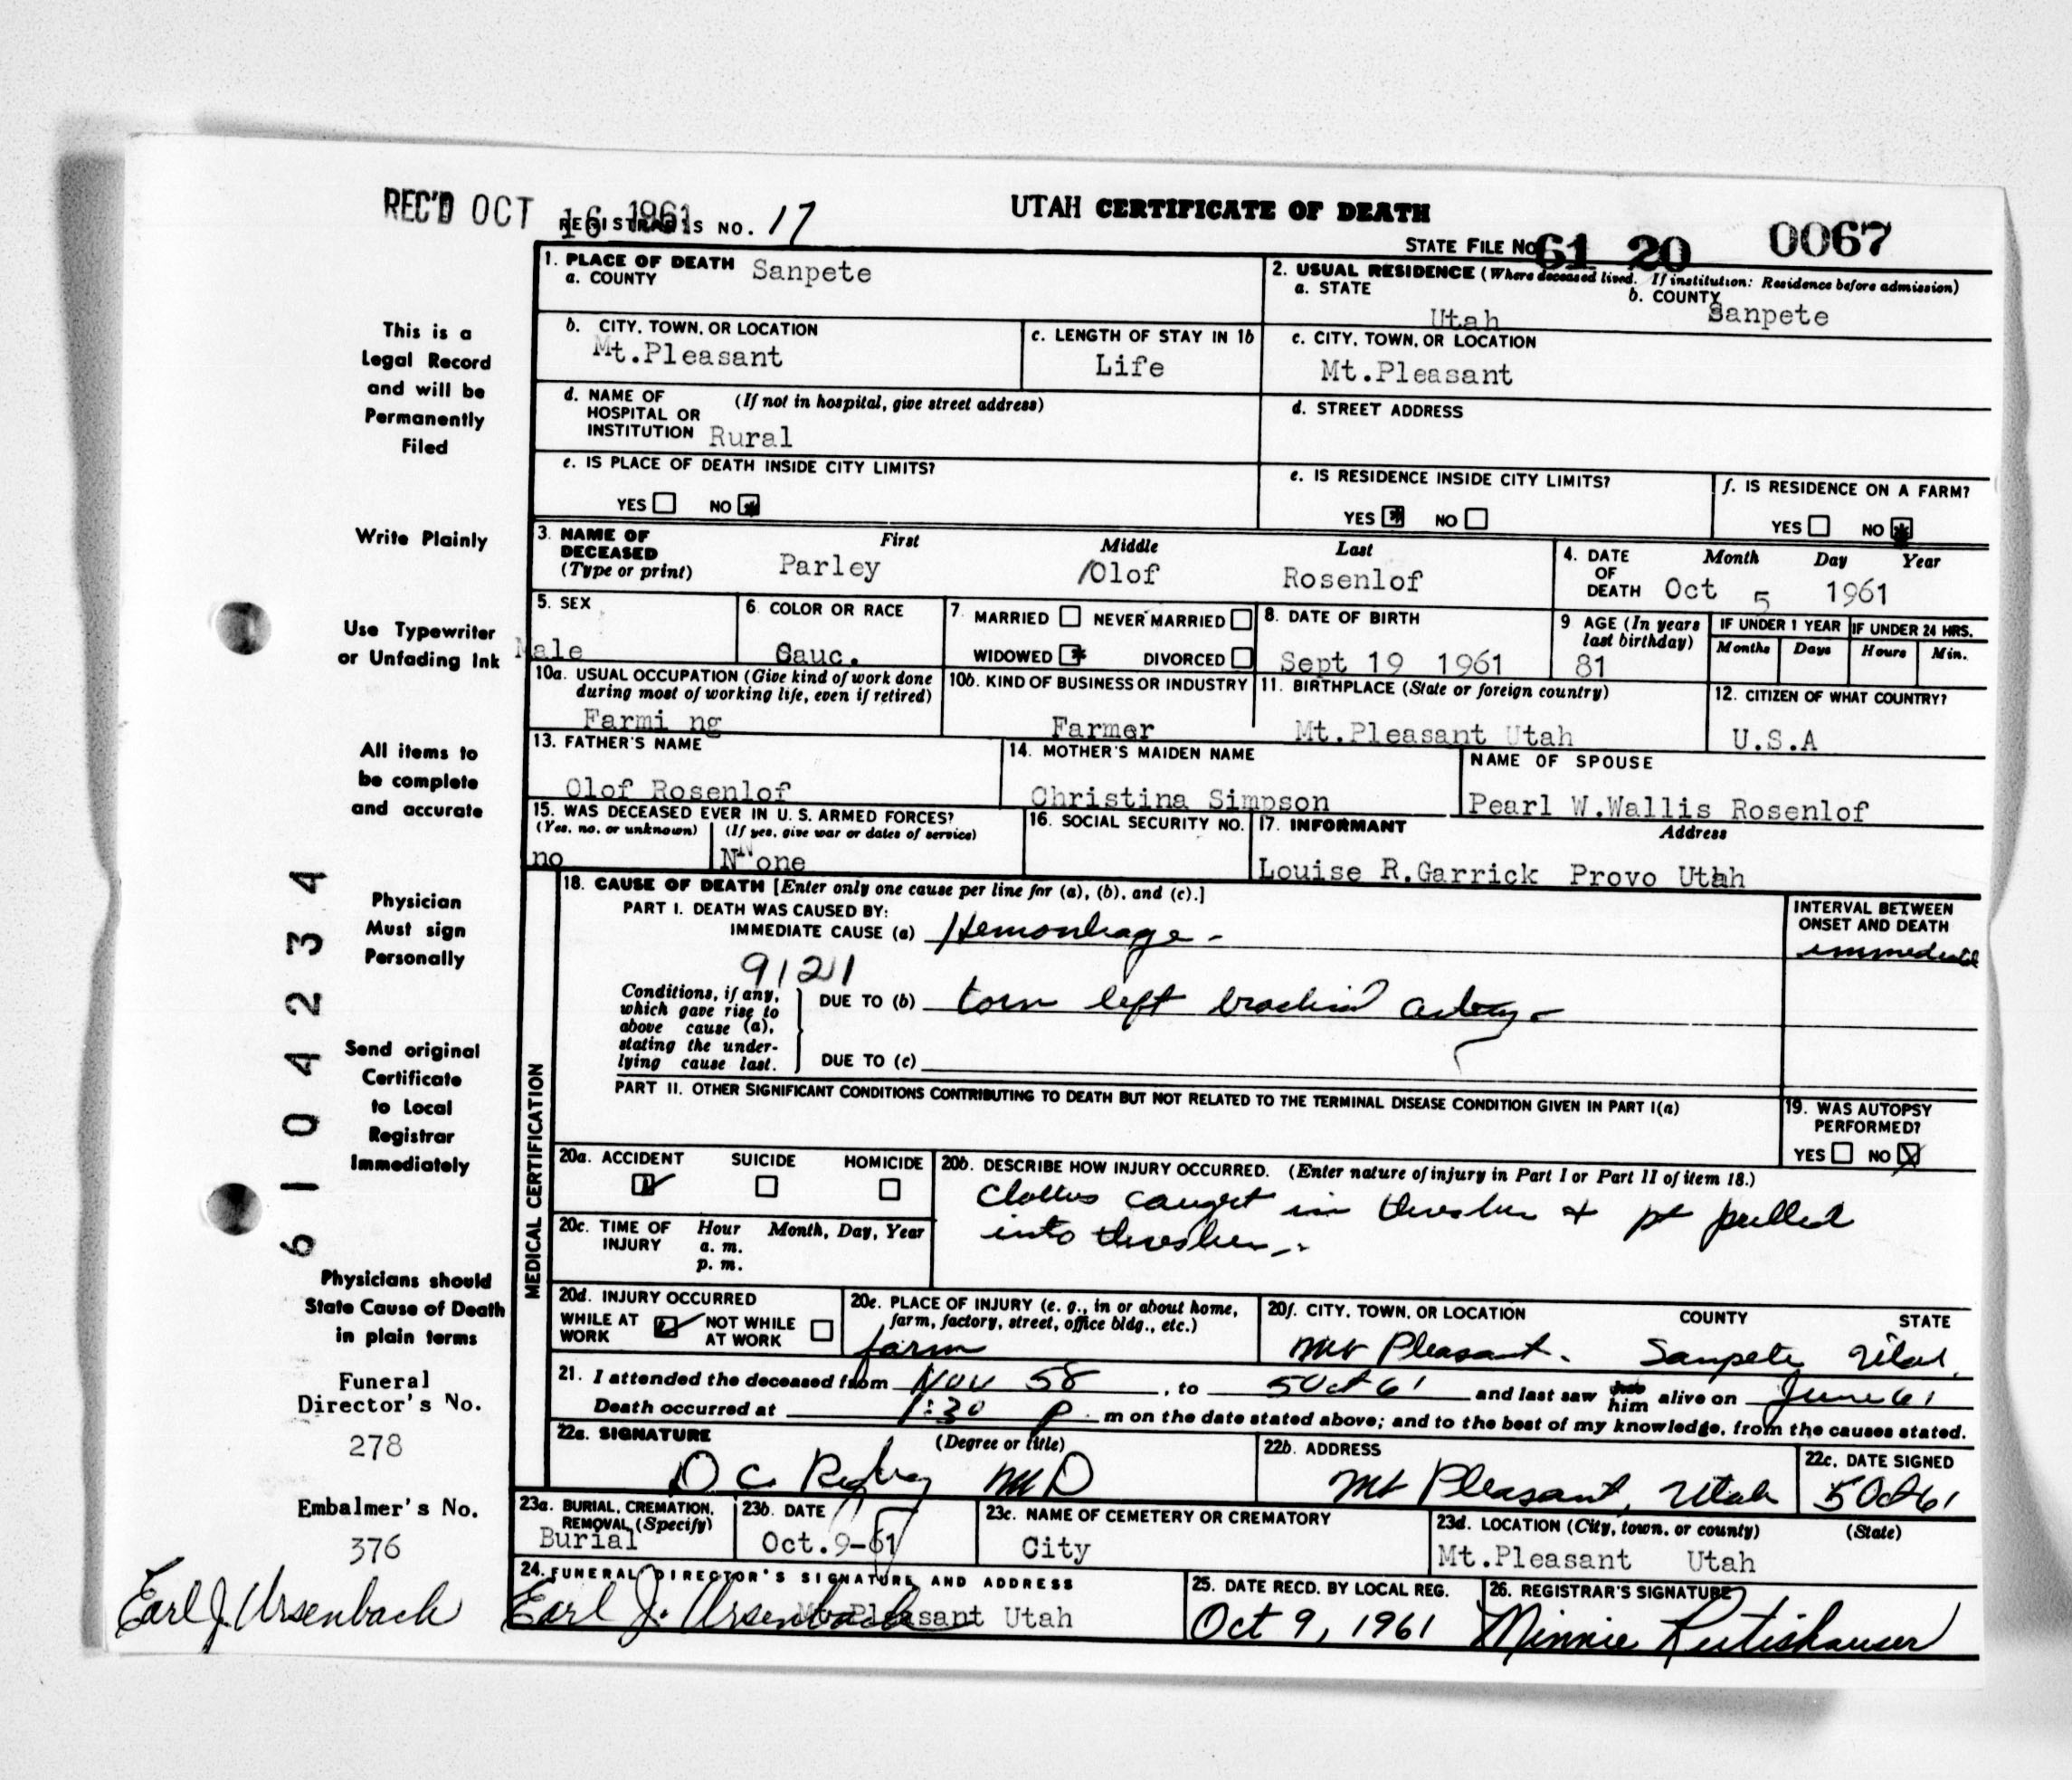 REC'D OCT 16 1961
REGISTRAR'S NO. 17
UTAH CERTIFICATE OF DEATH
STATE FILE NO. 61 20 0067
1. PLACE OF DEATH
a. COUNTY Sanpete
2. USUAL RESIDENCE (Where deceased lived. If institution: Residence before admission)
a. STATE Utah
b. COUNTY Sanpete
b. CITY, TOWN, OR LOCATION
Mt.Pleasant
c. LENGTH OF STAY IN 1b
Life
c. CITY, TOWN, OR LOCATION
Mt.Pleasant
d. NAME OF HOSPITAL OR INSTITUTION (If not in hospital, give street address)
Rural
d. STREET ADDRESS
e. IS PLACE OF DEATH INSIDE CITY LIMITS?
YES NO *
e. IS RESIDENCE INSIDE CITY LIMITS?
YES * NO
f. IS RESIDENCE ON A FARM?
YES NO *
3. NAME OF DECEASED (Type or print)
First Middle Last
Parley /Olof Rosenlof
4. DATE OF DEATH
Month Day Year
Oct 5 1961
5. SEX
Male
6. COLOR OR RACE
Cauc.
7. MARRIED NEVER MARRIED
WIDOWED * DIVORCED
8. DATE OF BIRTH
Sept 19 1961
9 AGE (In years last birthday)
81
IF UNDER 1 YEAR
Months Days
IF UNDER 24 HRS.
Hours Min.
10a. USUAL OCCUPATION (Give kind of work done during most of working life, even if retired)
Farmi ng
10b. KIND OF BUSINESS OR INDUSTRY
Farmer
11. BIRTHPLACE (State or foreign country)
Mt.Pleasant Utah
12. CITIZEN OF WHAT COUNTRY?
U.S.A
13. FATHER'S NAME
Olof Rosenlof
14. MOTHER'S MAIDEN NAME
Christina Simpson
NAME OF SPOUSE
Pearl W.Wallis Rosenlof
15. WAS DECEASED EVER IN U. S. ARMED FORCES?
(Yes, no, or unknown) (If yes, give war or dates of service)
no None
16. SOCIAL SECURITY NO.
17. INFORMANT Address
Louise R.Garrick Provo Utah
MEDICAL CERTIFICATION
18. CAUSE OF DEATH [Enter only one cause per line for (a), (b), and (c).]
PART I. DEATH WAS CAUSED BY:
IMMEDIATE CAUSE (a) Hemorrhage -
INTERVAL BETWEEN ONSET AND DEATH
immediate
9121
Conditions, if any, which gave rise to above cause (a), stating the underlying cause last.
DUE TO (b) torn left brachial artery -
DUE TO (c)
PART II. OTHER SIGNIFICANT CONDITIONS CONTRIBUTING TO DEATH BUT NOT RELATED TO THE TERMINAL DISEASE CONDITION GIVEN IN PART I(a)
19. WAS AUTOPSY PERFORMED?
YES NO X
20a. ACCIDENT SUICIDE HOMICIDE
20b. DESCRIBE HOW INJURY OCCURRED. (Enter nature of injury in Part I or Part II of item 18.)
Clothes caught in thresher + pt pulled
into thresher -
20c. TIME OF INJURY
Hour Month, Day, Year
a. m.
p. m.
20d. INJURY OCCURRED
WHILE AT WORK NOT WHILE AT WORK
20e. PLACE OF INJURY (e. g., in or about home, farm, factory, street, office bldg., etc.)
farm
20f. CITY, TOWN, OR LOCATION COUNTY STATE
Mt Pleasant. Sanpete Utah.
21. I attended the deceased from Nov 58, to 5 Oct 61 and last saw her him alive on June 61
Death occurred at 1:30 p. m on the date stated above; and to the best of my knowledge, from the causes stated.
22a. SIGNATURE (Degree or title)
D C Rigby MD
22b. ADDRESS
Mt Pleasant, Utah
22c. DATE SIGNED
5 Oct 61
23a. BURIAL, CREMATION, REMOVAL (Specify)
Burial
23b. DATE
Oct.9-61
23c. NAME OF CEMETERY OR CREMATORY
City
23d. LOCATION (City, town, or county) (State)
Mt.Pleasant Utah
24. FUNERAL DIRECTOR'S SIGNATURE AND ADDRESS
Earl J. Ursenbach
Mt.Pleasant Utah
25. DATE RECD. BY LOCAL REG.
Oct 9, 1961
26. REGISTRAR'S SIGNATURE
Minnie Rutishauser
This is a
Legal Record
and will be
Permanently
Filed
Write Plainly
Use Typewriter
or Unfading Ink
All items to
be complete
and accurate
Physician
Must sign
Personally
Send original
Certificate
to Local
Registrar
Immediately
Physicians should
State Cause of Death
in plain terms
Funeral
Director's No.
278
Embalmer's No.
376
Earl J Ursenbach
61042234